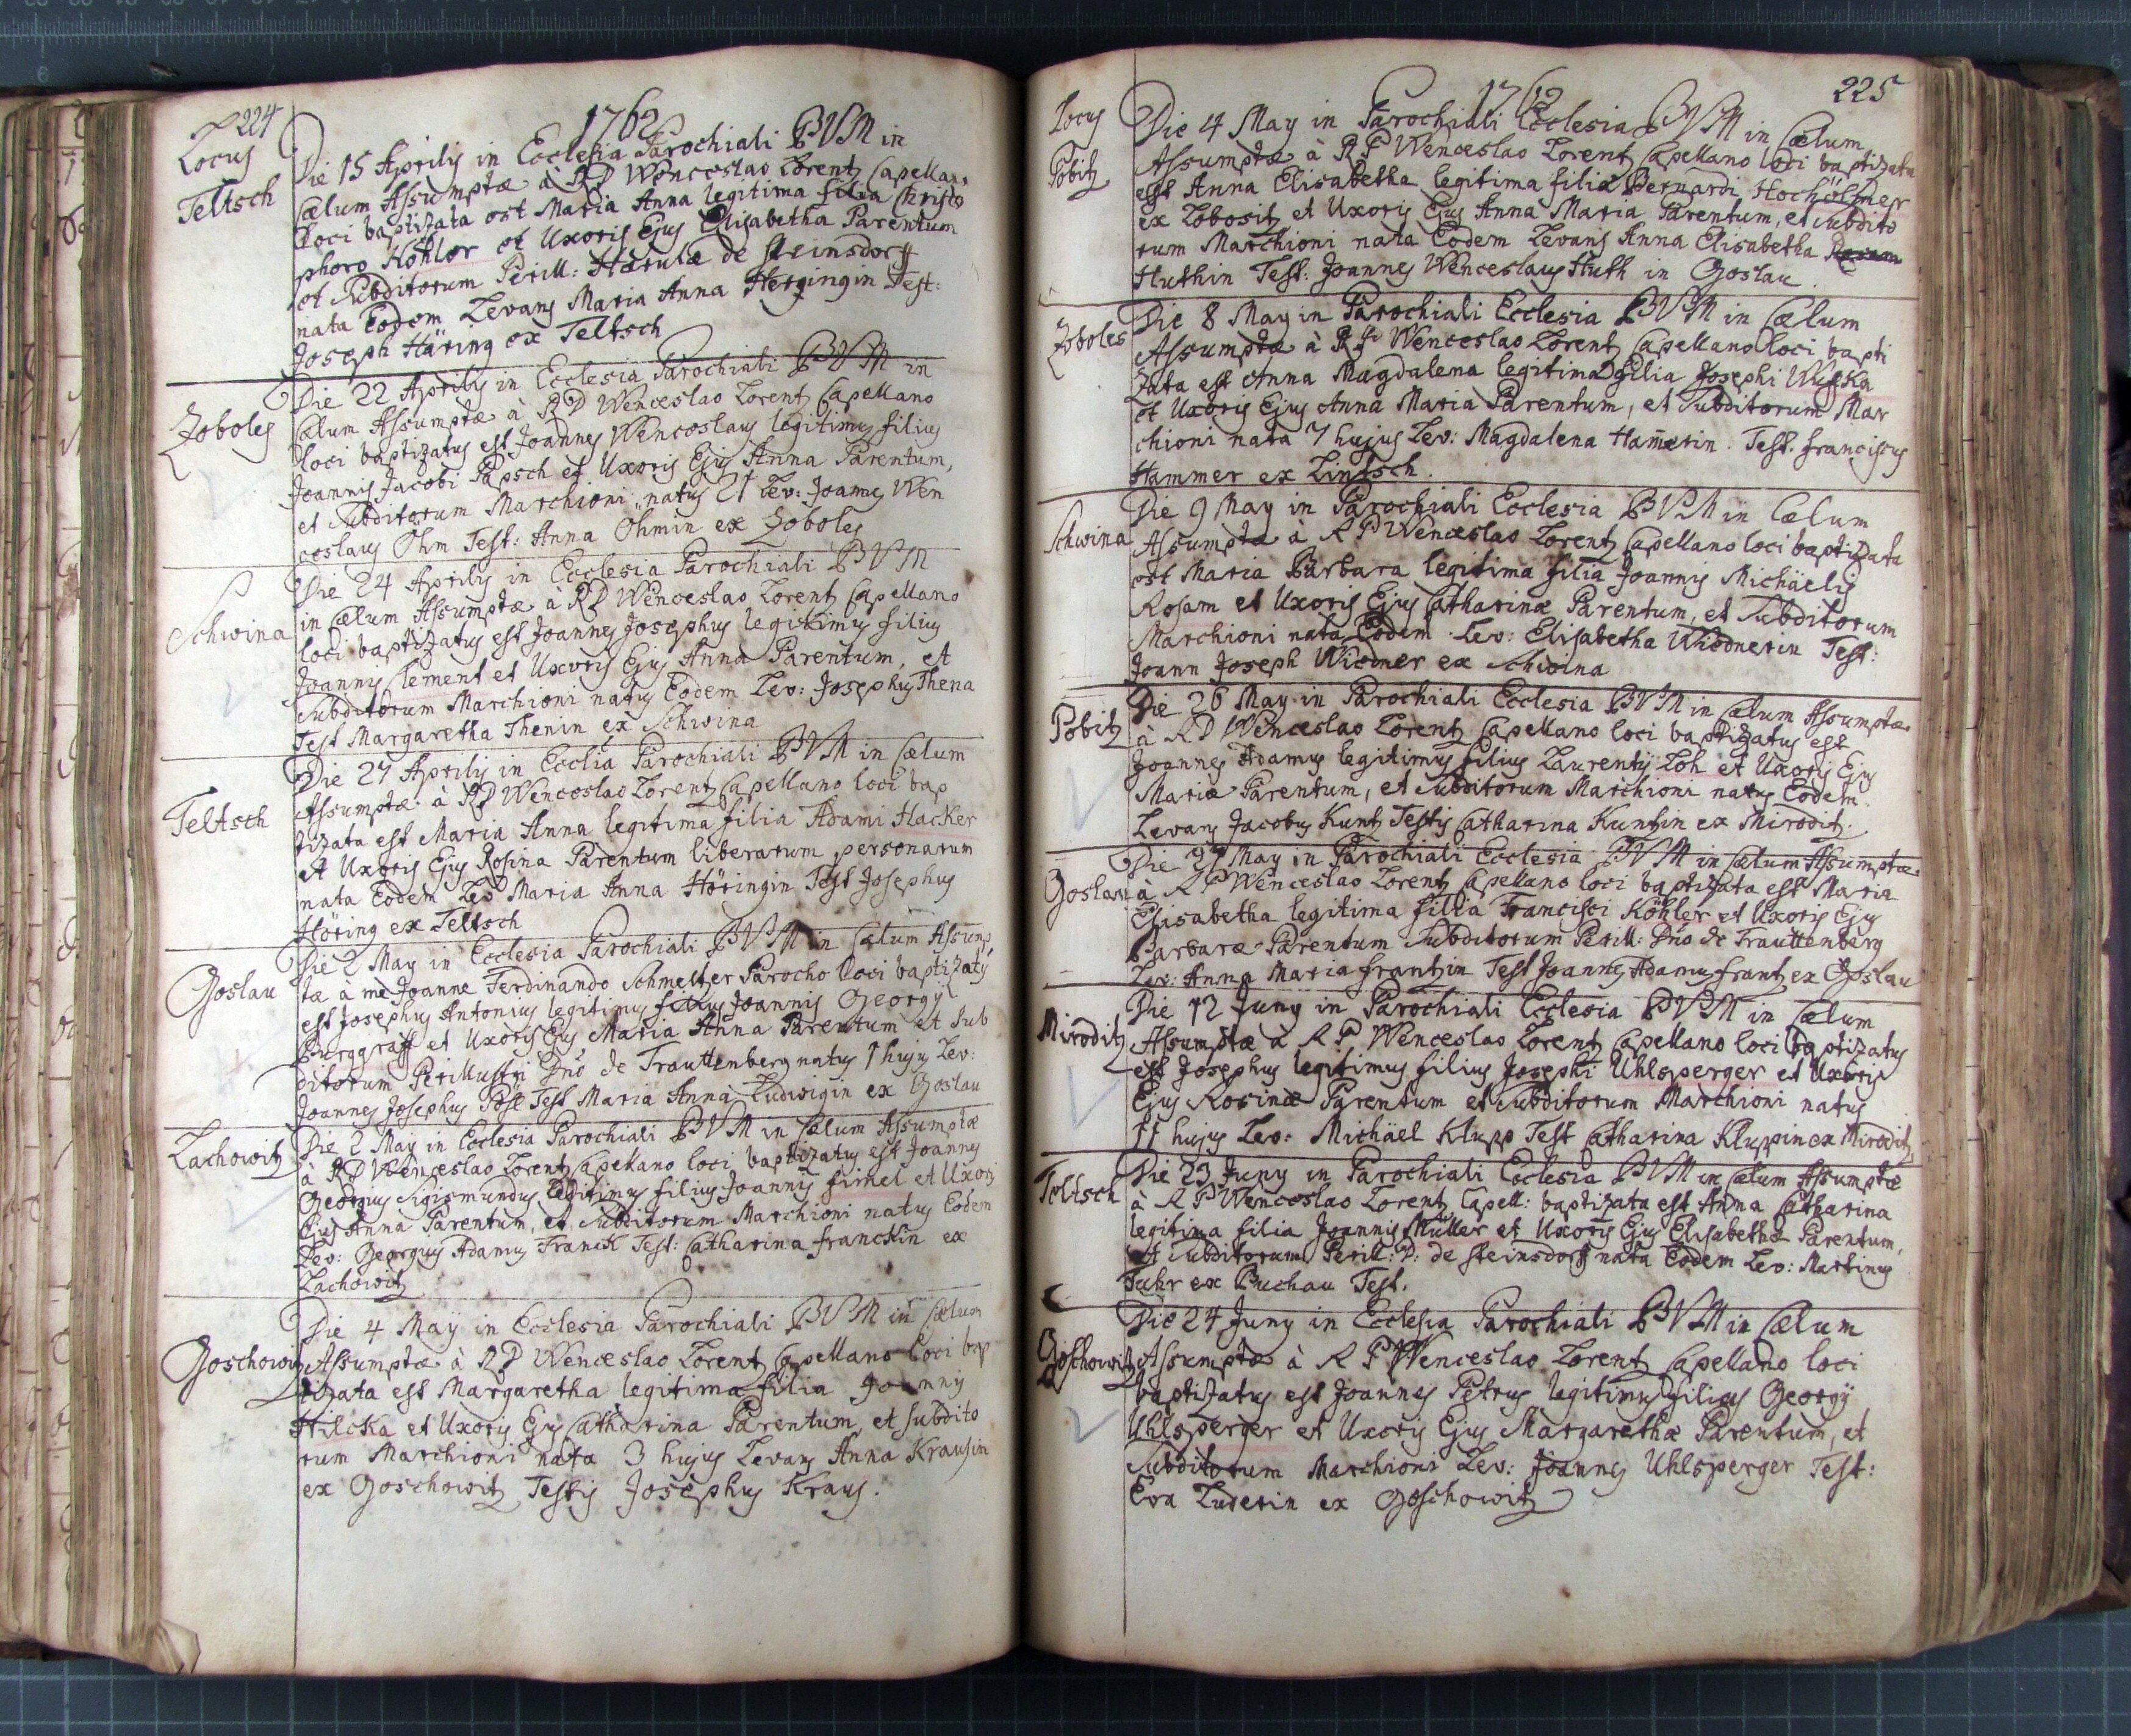 224
1762
Locus
Teltsch
Die 15 Aprilis in Ecclesia Parochiali BVM in
Cælum Assumptæ à RD Wenceslao Lorentz Capellano
loci baptizata est Maria Anna legitima filia Christo
phoro Köhler et Uxoris Ejus Elisabetha Parentum
et Subditorum Perill: de Steinsdorff
nata Eodem Levans Maria Anna Test:
Joseph Häring ex Teltsch
Zoboles
Die 22 Aprilis in Ecclesia Parochiali BVM in
Cælum Assumptæ à RD Wenceslao Lorentz Capellano
loci baptizatus est Joannes Wenceslaus legitimus filius
Joannis Jacobi Papsch et Uxoris Ejus Anna Parentum,
et Subditorum Marchioni natus 21 Lev: Joannes Wen
ceslaus Öhm Test: Anna Öhmin ex Zoboles
Schwina
Die 24 Aprilis in Ecclesia Parochiali BVM
in Cælum Assumptæ à RD Wenceslao Lorentz Capellano
loci baptizatus est Joannes Josephus legitimus filius
Joannis Clement et Uxoris Ejus Anna Parentum, et
Subditorum Marchioni natus Eodem Lev: Josephus Thena
Test Margaretha Thenin ex Schwina
Teltsch
Die 27 Aprilis in Ecclia Parochiali BVM in Cælum
Assumptæ à RD Wenceslao Lorentz Capellano loci bap
tizata est Maria Anna legitima filia Adami Hacker
et Uxoris Ejus Rosina Parentum liberarum personarum
nata Eodem Lev Maria Anna Höringin Test Josephus
Höring ex Teltsch
Goslau
Die 2 May in Ecclesia Parochiali BVM in Cælum Assump
tæ à me Joanne Ferdinando Schmeltzer Parocho loci baptizatus
est Josephus Antonius legitimus filius Joannis Georgÿ
Burggraff et Uxoris Ejus Maria Anna Parentum et Sub
ditorum Perillustri Dno de Trauttenberg natus 1 hujus Lev:
Joannes Josephus Test Maria Anna Ludwigin ex Goslau
Lachowitz
Die 2 May in Ecclesia Parochiali BVM in Cælum Assumptæ
à RD Wenceslao Lorentz Capellano loci baptizatus est Joannes
Georgius Sigismundus legitimus filius Joannis firnel et Uxoris
Ejus Anna Parentum, et Subditorum Marchioni natus Eodem
Lev: Georgius Adamus Franck Test: Catharina franckin ex
Lachowitz
Goschowitz
Die 4 Maÿ in Ecclesia Parochiali BVM in Cælum
Assumptæ à RD Wenceslao Lorentz Capellano loci bap
tizata est Margaretha legitima filia Joannis
Hilcka et Uxoris Ejus Catharina Parentum et subdito
rum Marchioni nata 3 hujus Levans Anna Krausin
ex Goschowitz Testis Josephus Kraus.
225
1762
Locus
Pobitz
Die 4 May in Parochiali Ecclesia BVM in Cælum
Assumptæ à RP Wenceslao Lorentz Capellano loci baptizata
est Anna Elisabetha legitima filia Bernardi Hochölzner
ex Lobositz et Uxoris Ejus Anna Maria Parentum, et Subdito
rum Marchioni nata Eodem Levans Anna Elisabetha
Huthin Test: Joannes Wenceslaus Huth in Goslau.
Zoboles
Die 8 May in Parochiali Ecclesia BVM in Cælum
Assumptæ à RP Wenceslao Lorentz Capellano loci bapti
zata est Anna Magdalena legitima filia Josephi
et Uxoris Ejus Anna Maria Parentum, et Subditorum Mar
chioni nata 7 hujus Lev: Magdalena Hamerin. Test. franciscus
Hammer ex Lintsch.
Schwina
Die 9 May in Parochiali Ecclesia BVM in Cælum
Assumptæ à RP Wenceslao Lorentz Capellano loci baptizata
est Maria Barbara legitima filia Joannis Michäelis
Rosam et Uxoris Ejus Catharinæ Parentum, et Subditorum
Marchioni nata Eodem. Lev: Elisabetha Wiednerin Test:
Joann Joseph Wiedner ex Schwina
Pobitz
Die 26 May in Parochiali Ecclesia BVM in Cælum Assumptæ
à RD Wenceslao Lorentz Capellano loci baptizatus est
Joannes Adamus legitimus filius Laurentÿ Loh et Uxoris Ejus
Mariæ Parentum, et Subditorum Marchioni natus Eodem
Levans Jacobus Kuntz Testis Catharina Kuntzin ex Miroditz.
Goslau
Die 27 May in Parochiali Ecclesia BVM in Cælum Assumptæ
à RP Wenceslao Lorentz Capellano loci baptizata est Maria
Elisabetha legitima filia Francisci Köhler et Uxoris Ejus
Barbaræ Parentum Subditorum Perill: Dno de Trauttenberg
Lev: Anna Maria frantzin Test Joannes Adamus frantz ex Goslau
Miroditz
Die 12 Juny in Parochiali Ecclesia BVM in Cælum
Assumptæ à RP Wenceslao Lorentz Capellano loci baptizatus
est Josephus legitimus filius Josephi Uhlsperger et Uxoris
Ejus Rosinæ Parentum et Subditorum Marchioni natus
11 hujus Lev: Michäel Klupp Test Catharina Kluppin ex Miroditz
Teltsch
Die 23 Juny in Parochiali Ecclesia BVM in Cælum Assumptæ
à RP Wenceslao Lorentz Capell: baptizata est Anna Catharina
legitima filia Joannis Müller et Uxoris Ejus Elisabethæ Parentum,
et Subditorum Perill: D: de Steinsdorff nata Eodem Lev: Martinus
Fuhr ex Buchau Test.
Goschowitz
Die 24 Juny in Ecclesia Parochiali BVM in Cælum
Assumptæ à RP Wenceslao Lorentz Capellano loci
baptizatus est Joannes Petrus legitimus filius Georgÿ
Uhlsperger et Uxoris Ejus Margarethæ Parentum, et
Subditorum Marchioni Lev: Joannes Uhlsperger Test:
Eva Luderin ex Goschowitz